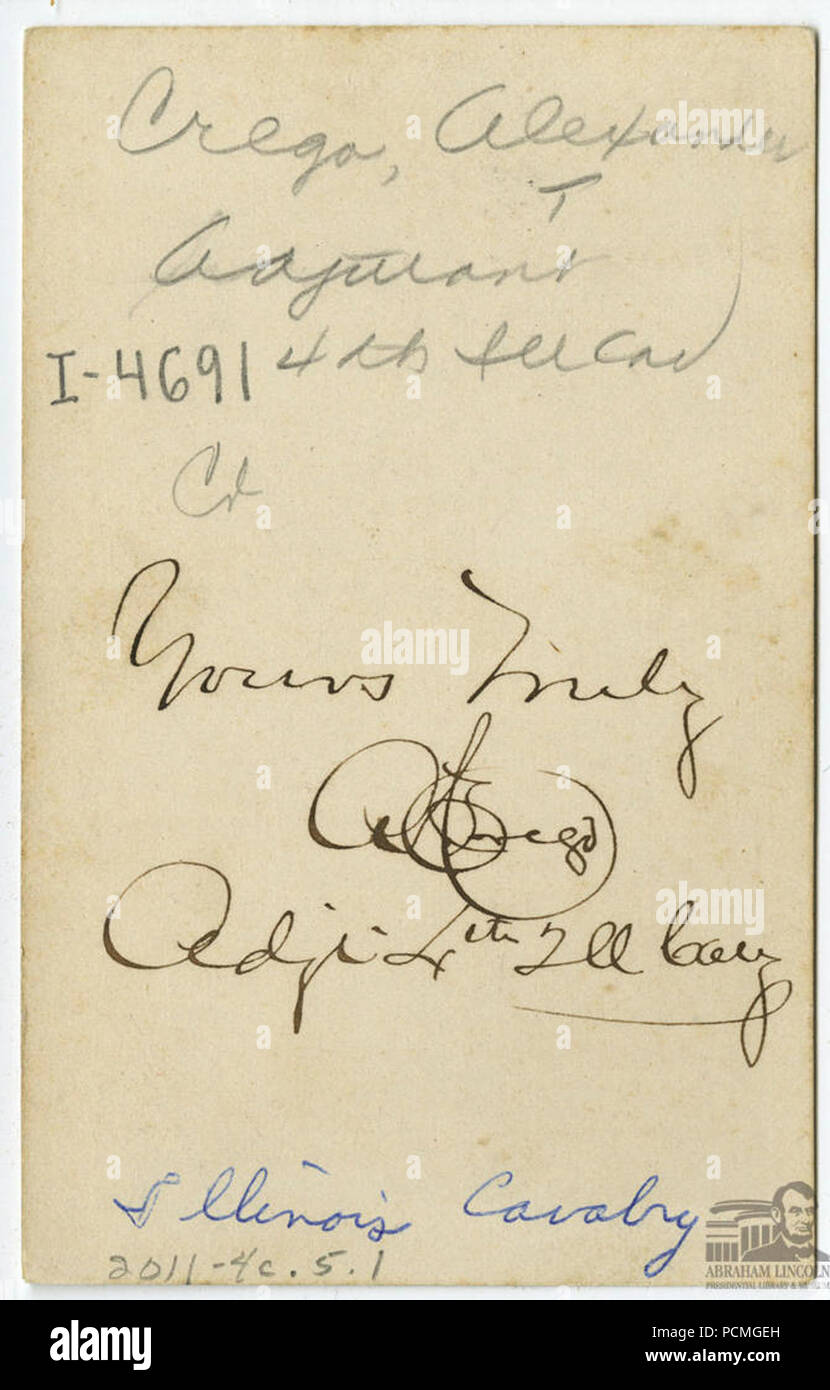 Crego, Alexander
T
Adjutant
I-4691 4th Ill Cav
Cd
Yours Truly
A T Crego
Adjt 4th Ill Cavy
Illinois Cavalry
2011-4c.5.1
ABRAHAM LINCOLN
PRESIDENTIAL LIBRARY & MUSEUM
alamy
Image ID: PCMGEH
www.alamy.com